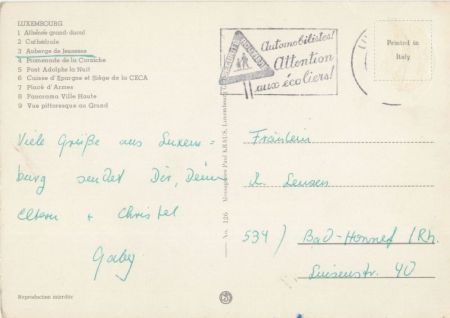 LUXEMBOURG
2 Cathédrale
3 Auberge de Jeunesse
4 Promenade de la Corniche
5 Pont Adolphe la Nuit
6 Caisse d'Epargne et Siège de la CECA
7 Place d'Armes
8 Panorama Ville Haute
9 Vue pittoresque au Grund
Automobilistes!
Attention
aux écoliers!
Printed in
Italy
Viele Grüße aus Luxem-
burg sendet Dir, Deinen
Eltern + Christel
Gaby
Fräulein
534) Bad-Honnef/Rh.
Luisenstr. 40
Messageries Paul KRAUS, Luxembourg
No. 126
Reproduction interdite